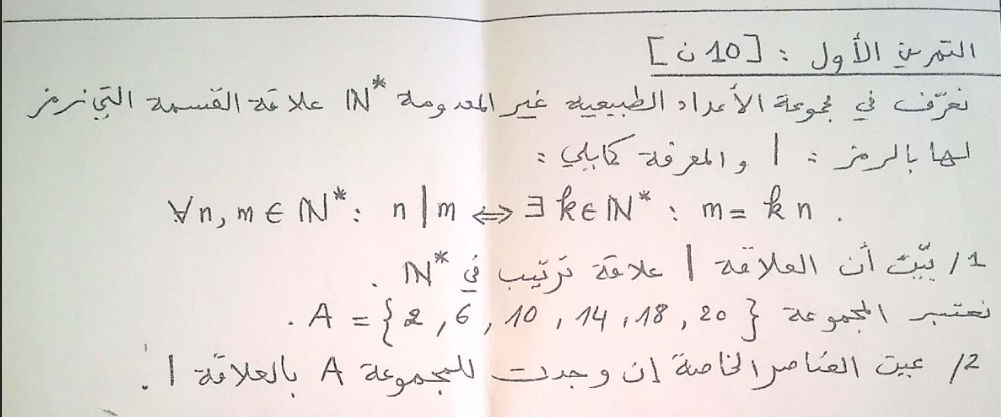 التمرين الأول : [10 ن]
نعرّف في مجموعة الأعداد الطبيعية غير المعدومة ℕ* علاقة القسمة التي نرمز
لها بالرمز : | و المعرفة كمايلي :
∀n, m ∈ ℕ* : n | m ⇔ ∃ k ∈ ℕ* : m = k n .
1/ بيّن أن العلاقة | علاقة ترتيب في ℕ* .
نعتبر المجموعة A = {2, 6, 10, 14, 18, 20} .
2/ عين العناصر الخاصة إن وجدت للمجموعة A بالعلاقة | .